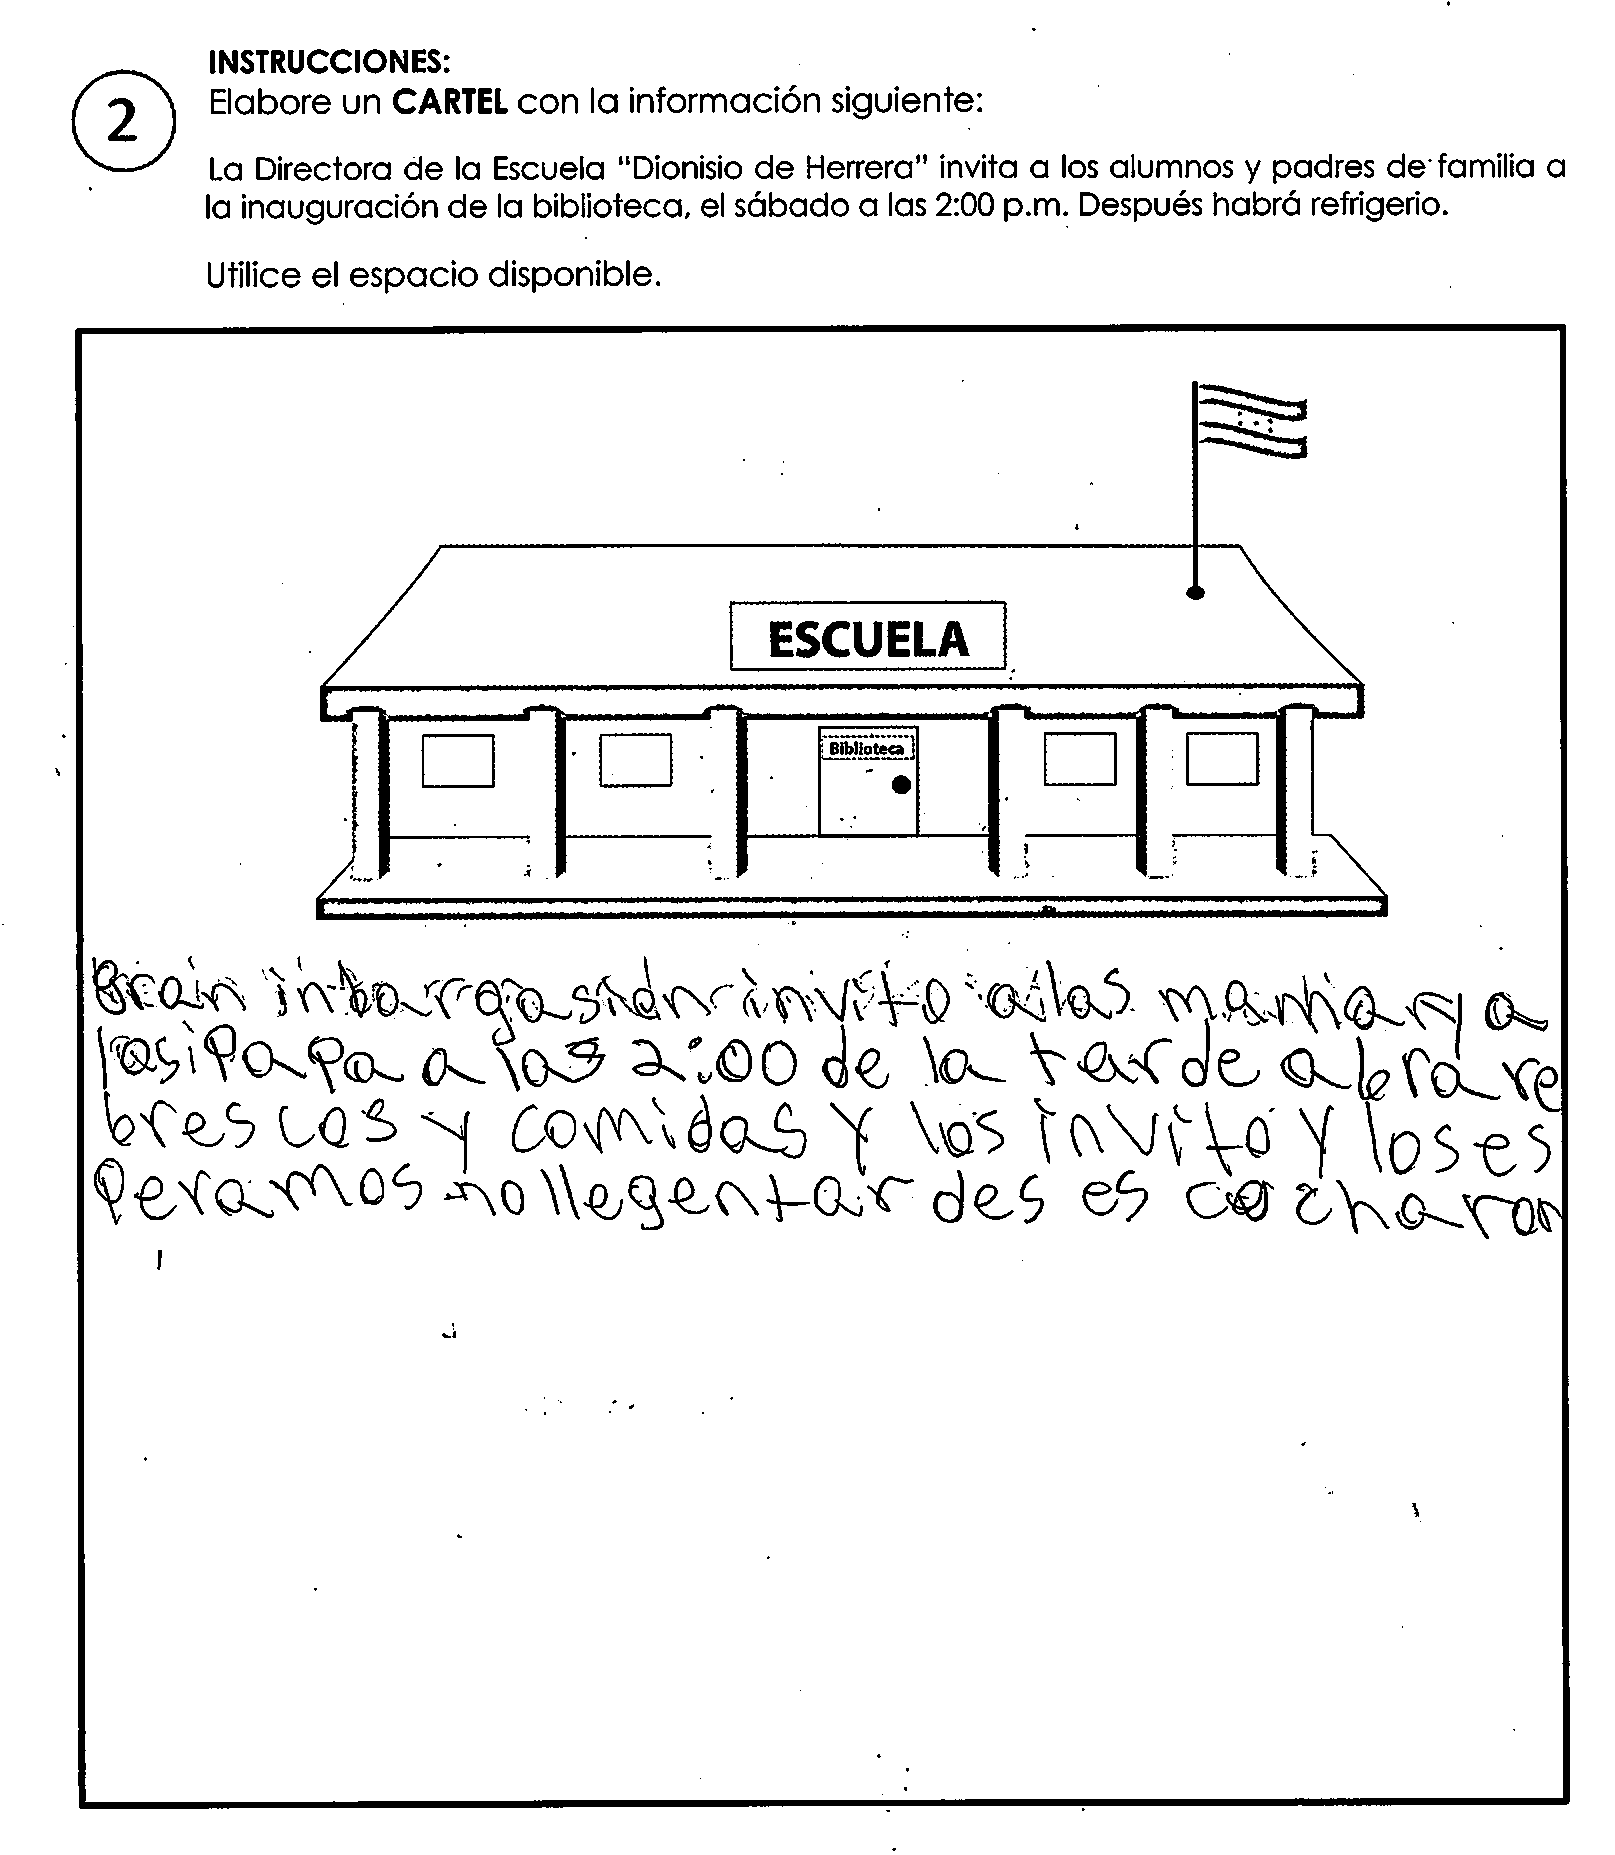 INSTRUCCIONES:
2
Elabore un CARTEL con la información siguiente:
La Directora de la Escuela "Dionisio de Herrera" invita a los alumnos y padres de familia a
la inauguración de la biblioteca, el sábado a las 2:00 p.m. Después habrá refrigerio.
Utilice el espacio disponible.
ESCUELA
Biblioteca
Gran invito a las y a
los Papa a las 2:00 de la tarde abra re
brescos y comidas y los invito y los es
Peramos no llegen tar des es cocharon